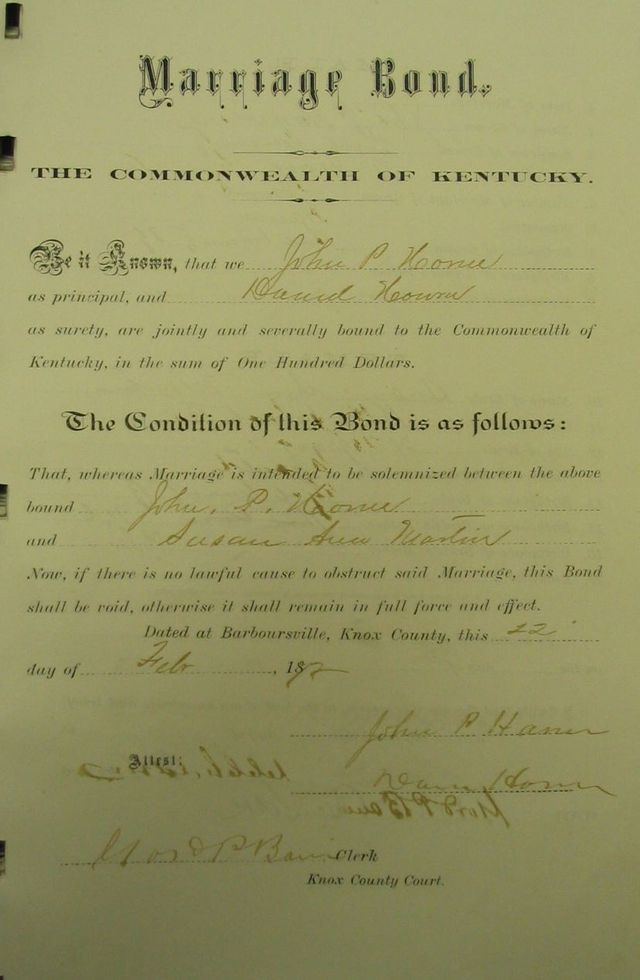 Marriage Bond.
THE COMMONWEALTH OF KENTUCKY.
Be it Known, that we John P Horne
as principal, and David Horne
as surety, are jointly and severally bound to the Commonwealth of
Kentucky, in the sum of One Hundred Dollars.
The Condition of this Bond is as follows:
That, whereas Marriage is intended to be solemnized between the above
bound John. P. Horne
and Susan Ann Martin
Now, if there is no lawful cause to obstruct said Marriage, this Bond
shall be void, otherwise it shall remain in full force and effect.
Dated at Barboursville, Knox County, this 22
day of Feb, 18
John P
Attest:
Clerk
Knox County Court.